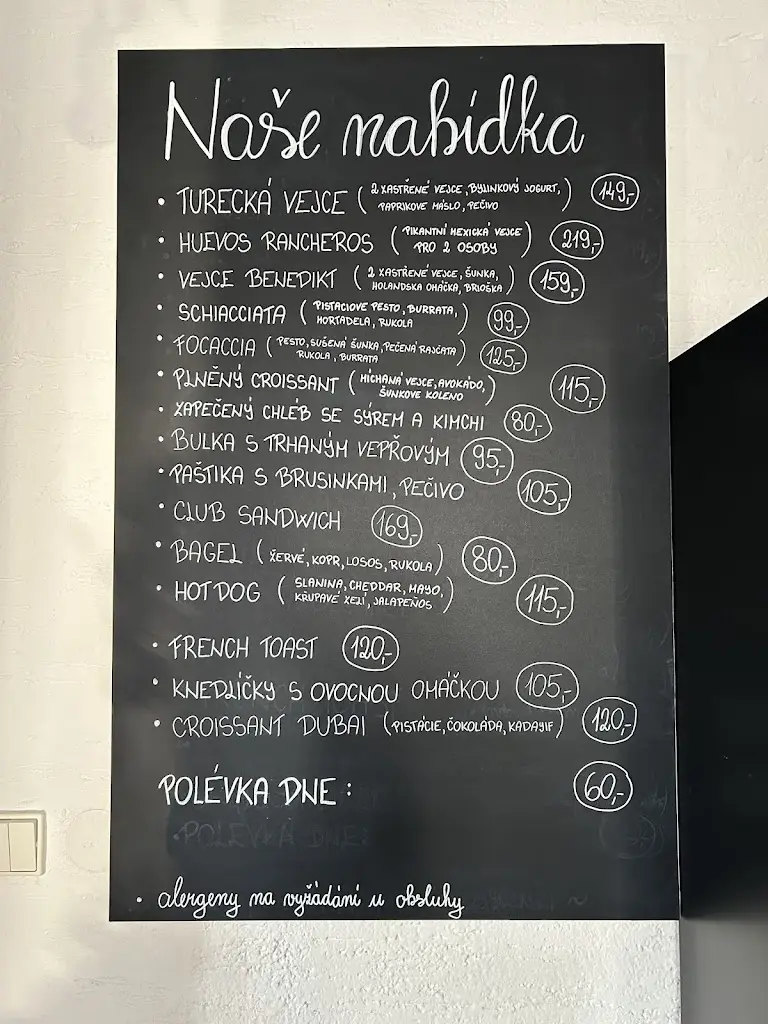 Naše nabídka
• TURECKÁ VEJCE ( 2 ZASTŘENÉ VEJCE, BYLINKOVÝ JOGURT, ) 149,-
PAPRIKOVE MÁSLO, PEČIVO
• HUEVOS RANCHEROS ( PIKANTNÍ MEXICKÁ VEJCE ) 219,-
PRO 2 OSOBY
• VEJCE BENEDIKT ( 2 ZASTŘENÉ VEJCE, ŠUNKA, ) 159,-
HOLANDSKA OMÁČKA, BRIOŠKA
• SCHIACCIATA ( PISTACIOVE PESTO, BURRATA, ) 99,-
MORTADELA, RUKOLA
• FOCACCIA ( PESTO, SUŠENÁ ŠUNKA, PEČENÁ RAJČATA ) 125,-
RUKOLA, BURRATA
• PLNĚNÝ CROISSANT ( MÍCHANÁ VEJCE, AVOKÁDO, ) 115,-
ŠUNKOVE KOLENO
• ZAPEČENÝ CHLÉB SE SÝREM A KIMCHI 80,-
• BULKA S TRHANÝM VEPŘOVÝM 95,-
• PAŠTIKA S BRUSINKAMI, PEČIVO 105,-
• CLUB SANDWICH 169,-
• BAGEL ( ŽERVÉ, KOPR, LOSOS, RUKOLA ) 80,-
• HOTDOG ( SLANINA, CHEDDAR, MAYO, ) 115,-
KŘUPAVÉ ZELÍ, JALAPEÑOS
• FRENCH TOAST 120,-
• KNEDLÍČKY S OVOCNOU OMÁČKOU 105,-
• CROISSANT DUBAI ( PISTÁCIE, ČOKOLÁDA, KADAYIF ) 120,-
POLÉVKA DNE : 60,-
• POLÉVKA DNE:
• alergeny na vyžádání u obsluhy